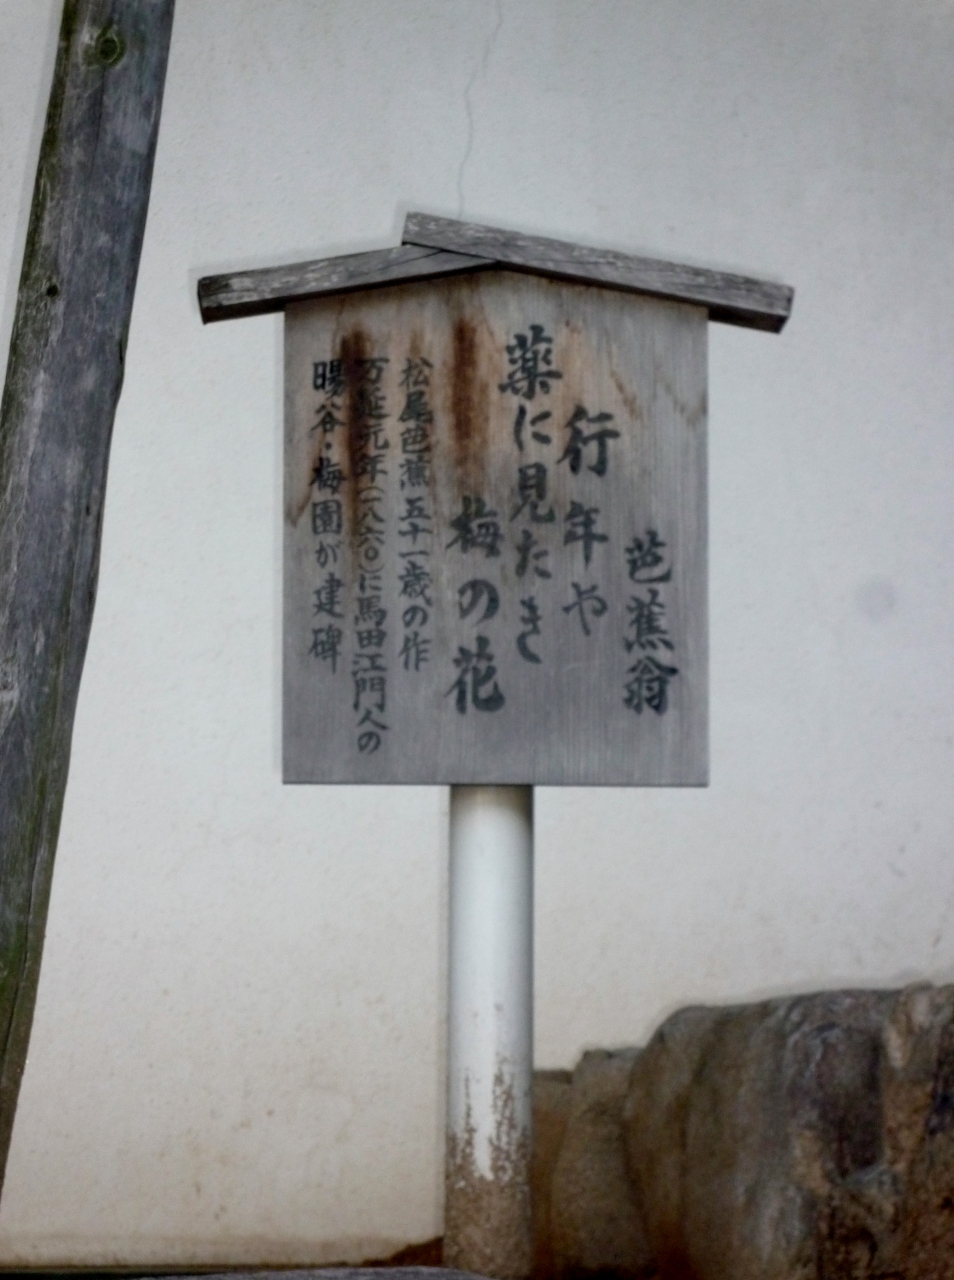 芭蕉翁
行年や
薬に見たき
梅の花
松尾芭蕉五十一歳の作
万延元年(一八六〇)に馬田江門人の
暘谷・梅園が建碑